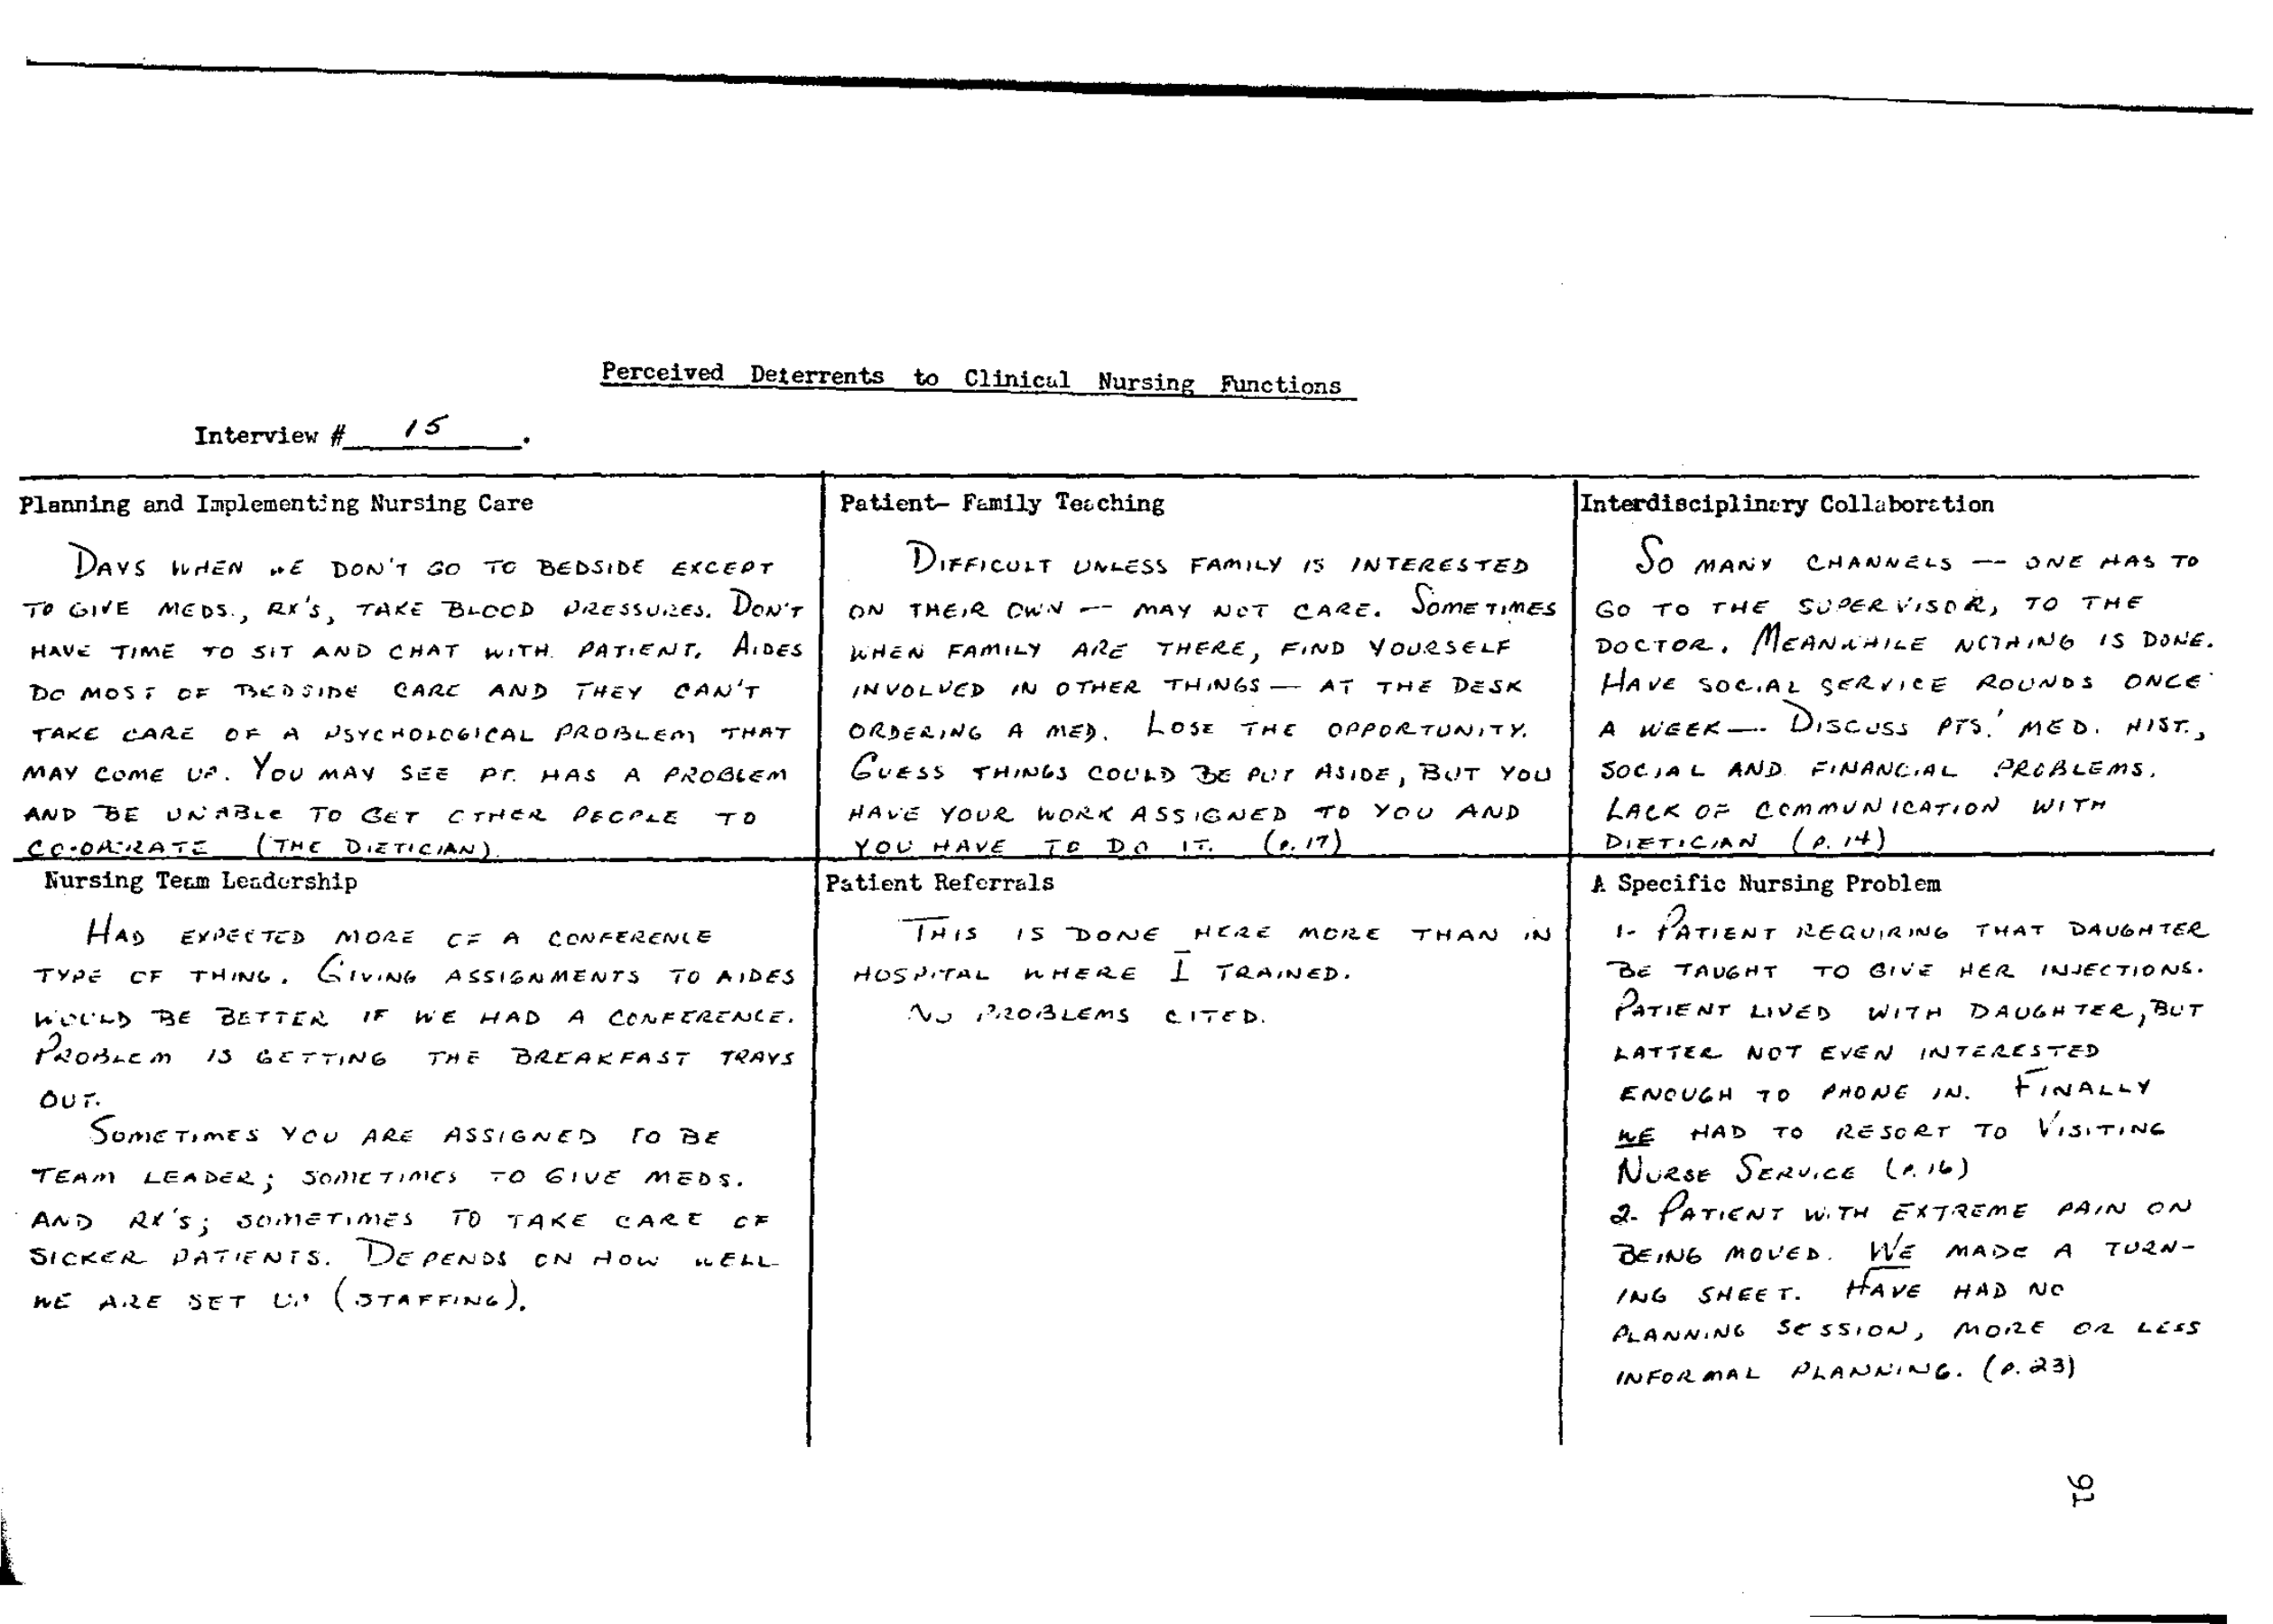 Perceived Deterrents to Clinical Nursing Functions
Interview # 15.
Planning and Implementing Nursing Care
DAYS WHEN WE DON'T GO TO BEDSIDE EXCEPT
TO GIVE MEDS., RX'S, TAKE BLOOD PRESSURES. DON'T
HAVE TIME TO SIT AND CHAT WITH PATIENT. AIDES
DO MOST OF BEDSIDE CARE AND THEY CAN'T
TAKE CARE OF A PSYCHOLOGICAL PROBLEM THAT
MAY COME UP. YOU MAY SEE PT. HAS A PROBLEM
AND BE UNABLE TO GET OTHER PEOPLE TO
CO-OPERATE (THE DIETICIAN)
Patient- Family Teaching
DIFFICULT UNLESS FAMILY IS INTERESTED
ON THEIR OWN -- MAY NOT CARE. SOMETIMES
WHEN FAMILY ARE THERE, FIND YOURSELF
INVOLVED IN OTHER THINGS — AT THE DESK
ORDERING A MED. LOSE THE OPPORTUNITY.
GUESS THINGS COULD BE PUT ASIDE, BUT YOU
HAVE YOUR WORK ASSIGNED TO YOU AND
YOU HAVE TO DO IT. (P. 17)
Interdisciplinary Collaboration
SO MANY CHANNELS -- ONE HAS TO
GO TO THE SUPERVISOR, TO THE
DOCTOR. MEANWHILE NOTHING IS DONE.
HAVE SOCIAL SERVICE ROUNDS ONCE
A WEEK — DISCUSS PTS.' MED. HIST.,
SOCIAL AND FINANCIAL PROBLEMS.
LACK OF COMMUNICATION WITH
DIETICIAN (P. 14)
Nursing Team Leadership
HAD EXPECTED MORE OF A CONFERENCE
TYPE OF THING. GIVING ASSIGNMENTS TO AIDES
WOULD BE BETTER IF WE HAD A CONFERENCE.
PROBLEM IS GETTING THE BREAKFAST TRAYS
OUT.
SOMETIMES YOU ARE ASSIGNED TO BE
TEAM LEADER; SOMETIMES TO GIVE MEDS.
AND RX'S; SOMETIMES TO TAKE CARE OF
SICKER PATIENTS. DEPENDS ON HOW WELL
WE ARE SET UP (STAFFING).
Patient Referrals
THIS IS DONE HERE MORE THAN IN
HOSPITAL WHERE I TRAINED.
NO PROBLEMS CITED.
A Specific Nursing Problem
1- PATIENT REQUIRING THAT DAUGHTER
BE TAUGHT TO GIVE HER INJECTIONS.
PATIENT LIVED WITH DAUGHTER, BUT
LATTER NOT EVEN INTERESTED
ENOUGH TO PHONE IN. FINALLY
WE HAD TO RESORT TO VISITING
NURSE SERVICE (P. 16)
2- PATIENT WITH EXTREME PAIN ON
BEING MOVED. WE MADE A TURN-
ING SHEET. HAVE HAD NO
PLANNING SESSION, MORE OR LESS
INFORMAL PLANNING. (P. 23)
91